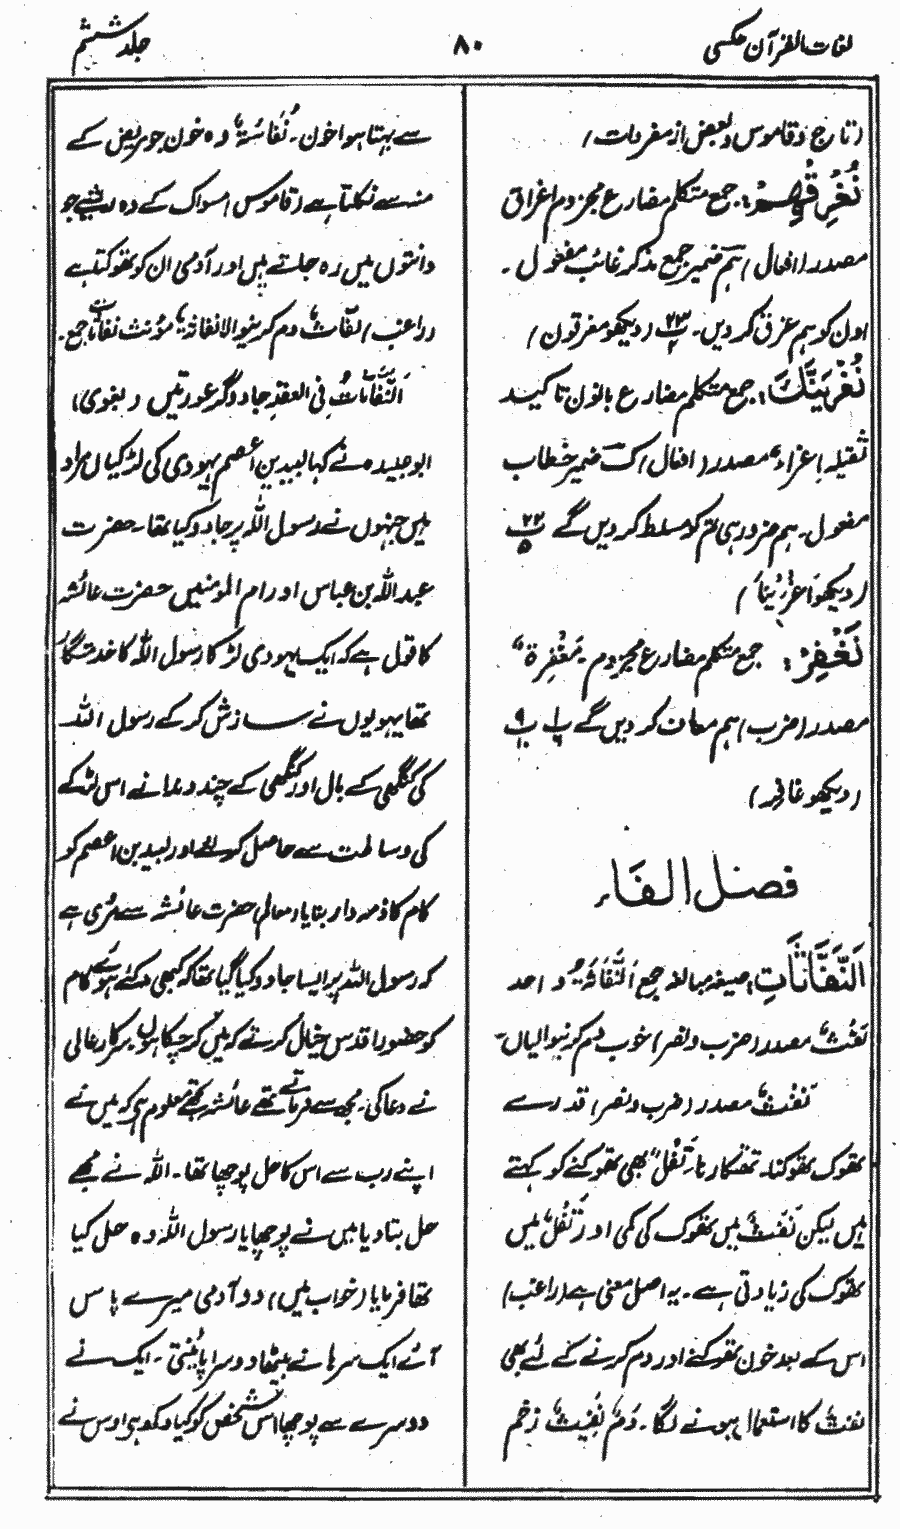 لغات القرآن عکسی
۸۰
جلد ششم
(تاج و قاموس و بعض از مفردات)
نُغْرِقْهُمْ: جمع متکلم مضارع مجزوم اغراق
مصدر (افعال) ہم ضمیر جمع مذکر غائب مفعول ۔
اون کو ہم غرق کر دیں۔ ۲۳ (دیکھو مغرقون)
نُغْرِیَنَّكَ: جمع متکلم مضارع بانون تاکید
ثقیلہ اِغراءٌ مصدر (افعال) ک ضمیر خطاب
مفعول۔ ہم ضرور ہی تم کو مسلط کر دیں گے ۲۲
(دیکھو اَغْرَیْنَا)
نَغْفِرْ: جمع متکلم مضارع مجزوم۔ مَغْفِرَةٌ
مصدر (ضرب) ہم معاف کر دیں گے
(دیکھو غافِر)
فصل الفاء
اَلنَّفّٰثٰتِ: صیغہ مبالغہ جمع اَلنَّفَّاثَةُ واحد
نَفْثٌ مصدر (ضرب و نصر) خوب دم کرنیوالیاں۔
نَفْثٌ مصدر (ضرب و نصر) قدرے
تھوک تھوکنا۔ تھتکارنا۔ تَفْلٌ بھی تھوکنے کو کہتے
ہیں لیکن نَفْثٌ میں تھوک کی کمی اور تَفْلٌ میں
تھوک کی زیادتی ہے۔ یہ اصل معنی ہے (راغب)
اس کے بعد خون تھوکنے اور دم کرنے کے لئے بھی
نفث کا استعمال ہونے لگا۔ دَمٌ نَفِیْثٌ زخم
سے بہتا ہوا خون۔ نُفَاثَةٌ وہ خون جو مریض کے
منہ سے نکلتا ہے (قاموس) مسواک کے وہ ریشے جو
دانتوں میں رہ جاتے ہیں اور آدمی ان کو تھوکتا ہے
(راغب) نفّاثٌ دم کرنیوالا نفاثةٌ مؤنث نفاثات جمع۔
اَلنَّفّٰثٰتُ فِی العقد جادوگر عورتیں (بغوی)
ابو عبیدہ نے کہا لبید بن اعصم یہودی کی لڑکیاں مراد
ہیں جنہوں نے رسول اللہ پر جادو کیا تھا۔ حضرت
عبداللہ بن عباس اور ام المومنین حضرت عائشہ
کا قول ہے کہ ایک یہودی لڑکا رسول اللہ کا خدمتگار
تھا یہودیوں نے سازش کر کے رسول اللہ
کی کنگھی کے بال اور کنگھی کے چند دندانے اس لڑکے
کی وساطت سے حاصل کر لئے اور لبید بن اعصم کو
کام کا ذمہ دار بنایا (معالم) حضرت عائشہ سے مروی ہے
کہ رسول اللہ پر ایسا جادو کیا گیا تھا کہ کبھی نہ کئے ہوئے کام
کو حضور اقدس خیال کرتے کہ میں کر چکا ہوں سرکار عالی
نے دعا کی۔ مجھ سے فرماتے تھے عائشہ تجھے معلوم ہے کہ میں نے
اپنے رب سے اس کا حل پوچھا تھا۔ اللہ نے مجھے
حل بتا دیا میں نے پوچھا یا رسول اللہ وہ حل کیا
تھا فرمایا (خواب میں) دو آدمی میرے پاس
آئے ایک سرہانے بیٹھا دوسرا پائینتی۔ ایک نے
دوسرے سے پوچھا اس شخص کو کیا دکھ ہی اوس نے